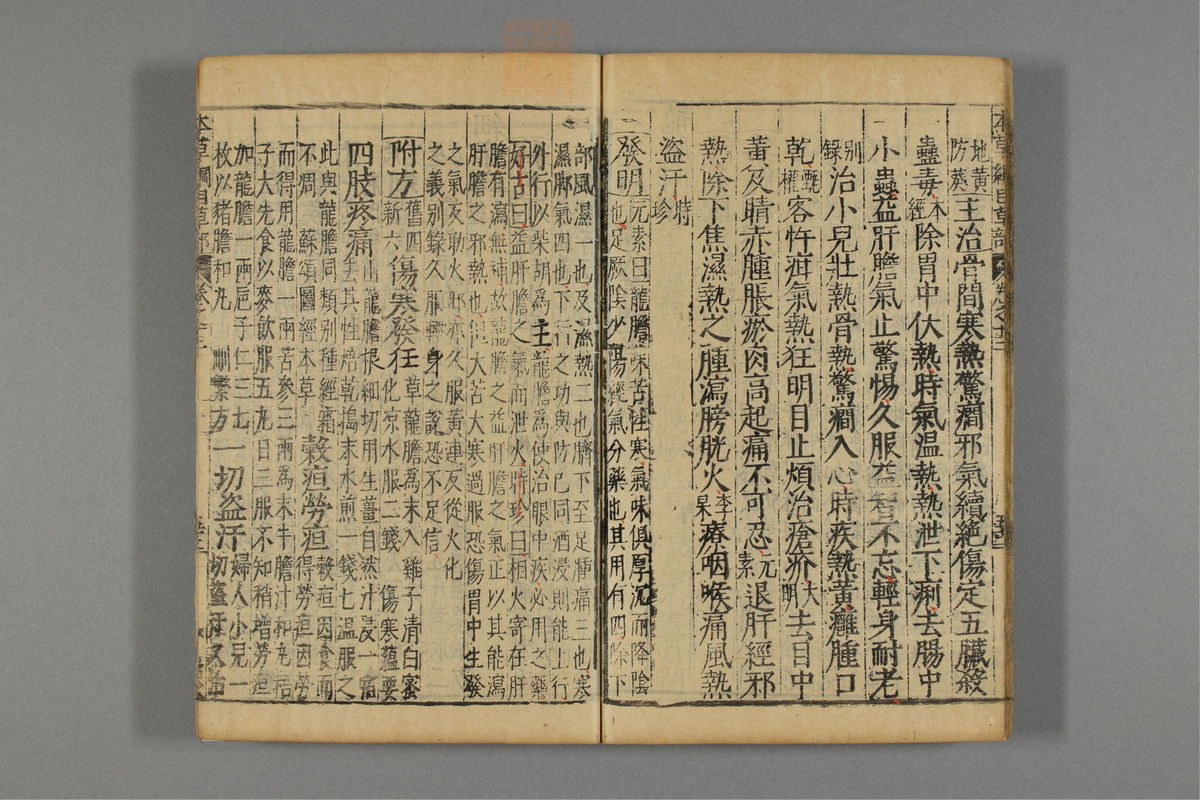 地黃防葵主治骨間寒熱驚癇邪氣續絕傷定五臟殺
蠱毒本經除胃中伏熱時氣温熱熱泄下痢去腸中
小蟲益肝膽氣止驚惕久服益智不忘輕身耐老
別錄治小兒壯熱骨熱驚癇入心時疾熱黃癰腫口
乾甄權客忤疳氣熱狂明目止煩治瘡疥大明去目中
黃及睛赤腫脹瘀肉高起痛不可忍元素退肝經邪
熱除下焦濕熱之腫瀉膀胱火李杲療咽喉痛風熱
盜汗時珍
發明元素曰龍膽味苦性寒氣味俱厚沉而降陰
也足厥陰少陽經氣分藥也其用有四除下
部風濕一也及濕熱二也臍下至足腫痛三也寒
濕脚氣四也下行之功與防已同酒浸則能上行
外行以柴胡爲主龍膽爲使治眼中疾必用之藥
好古曰益肝膽之氣而泄火時珍曰相火寄在肝
膽有瀉無補故龍膽之益肝膽之氣正以其能瀉
肝膽之邪熱也但大苦大寒過服恐傷胃中生發
之氣反助火邪亦久服黃連反從火化
之義別錄久服輕身之說恐不足信
附方舊四新六傷寒發狂草龍膽爲末入雞子清白蜜
化凉水服二錢 傷寒蘊要
四肢疼痛山龍膽根細切用生薑自然汁浸一宿
去其性焙乾搗末水煎一錢七温服之
此與龍膽同類別種經霜
不凋 蘇頌圖經本草
穀疸勞疸穀疸因食而
得勞疸因勞
而得用龍膽一兩苦參三兩爲末牛膽汁和先梧
子大先食以麥飲服五丸日三服不知稍增勞疸
加龍膽一兩巵子仁三七
枚以猪膽和丸 刪繁方
一切盜汗婦人小兒一
切盜汗
本草綱目草部